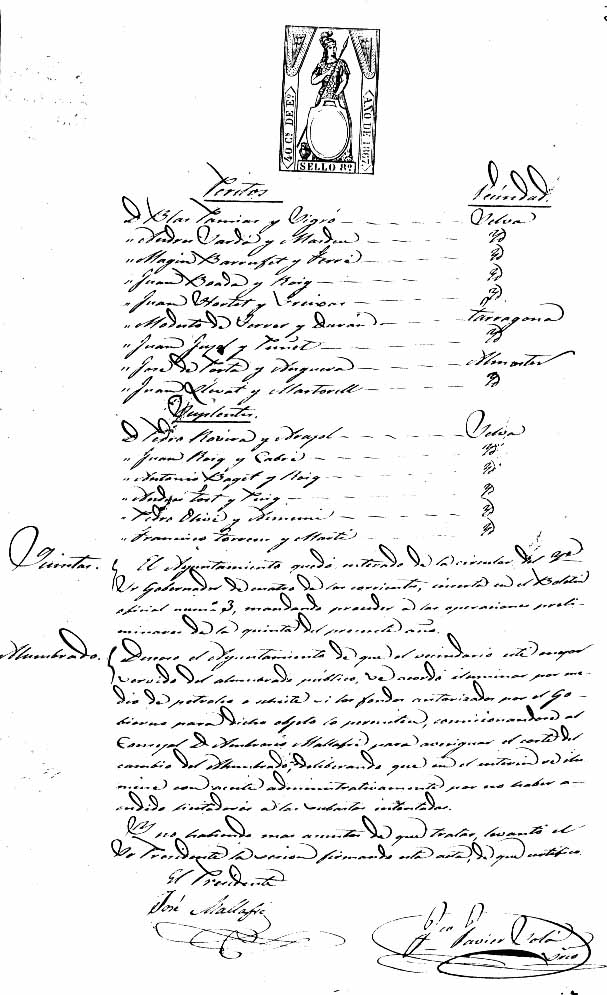 40 Cs. DE Eo.
AÑO DE 1867
SELLO 8º
Peritos Vecindad
D. Blas y Vigró Selva
" Andrés y Yd
" Magin Barrufet y Ferré Yd
" Juan Boada y Roig Yd
" Juan y Yd
" Modesto de y Durán Tarragona
" Juan y Yd
" José de y Almoster
" Juan y Martorell Yd
Suplentes.
D. Pedro Rovira y Selva
" Juan Roig y Cabré Yd
" Antonio Baget y Roig Yd
" Andrés Fort y Puig Yd
" Pedro Olivé y Yd
" Francisco Torrens y Martí Yd
Quintas. El Ayuntamiento quedó enterado de la circular del
Sr Gobernador de cuatro de los corrientes, inserta en el Boletin
oficial num.º 3, mandando proceder á las operaciones preli-
minares de la quinta del presente año.
Alumbrado. Deseoso el Ayuntamiento de que el vecindario esté mejor
servido del alumbrado público, se acordó iluminar por me-
dio de petroleo o si los fondos autorizados por el Go-
bierno para dicho objeto lo permiten, comisionandose al
Concejal D. Ambrosio Mallafré para averiguar el coste del
cambio del Alumbrado, deliberando que en el interin se ilu-
mine con aceite administrativamente por no haber a-
cudido licitadores a las subastas intentadas.
Y no habiendo mas asuntos de que tratar, levantó el
Sr Presidente la sesion firmando esta acta, de que certifico.
El Presidente
José Mallafré
Javier Solá
Srio